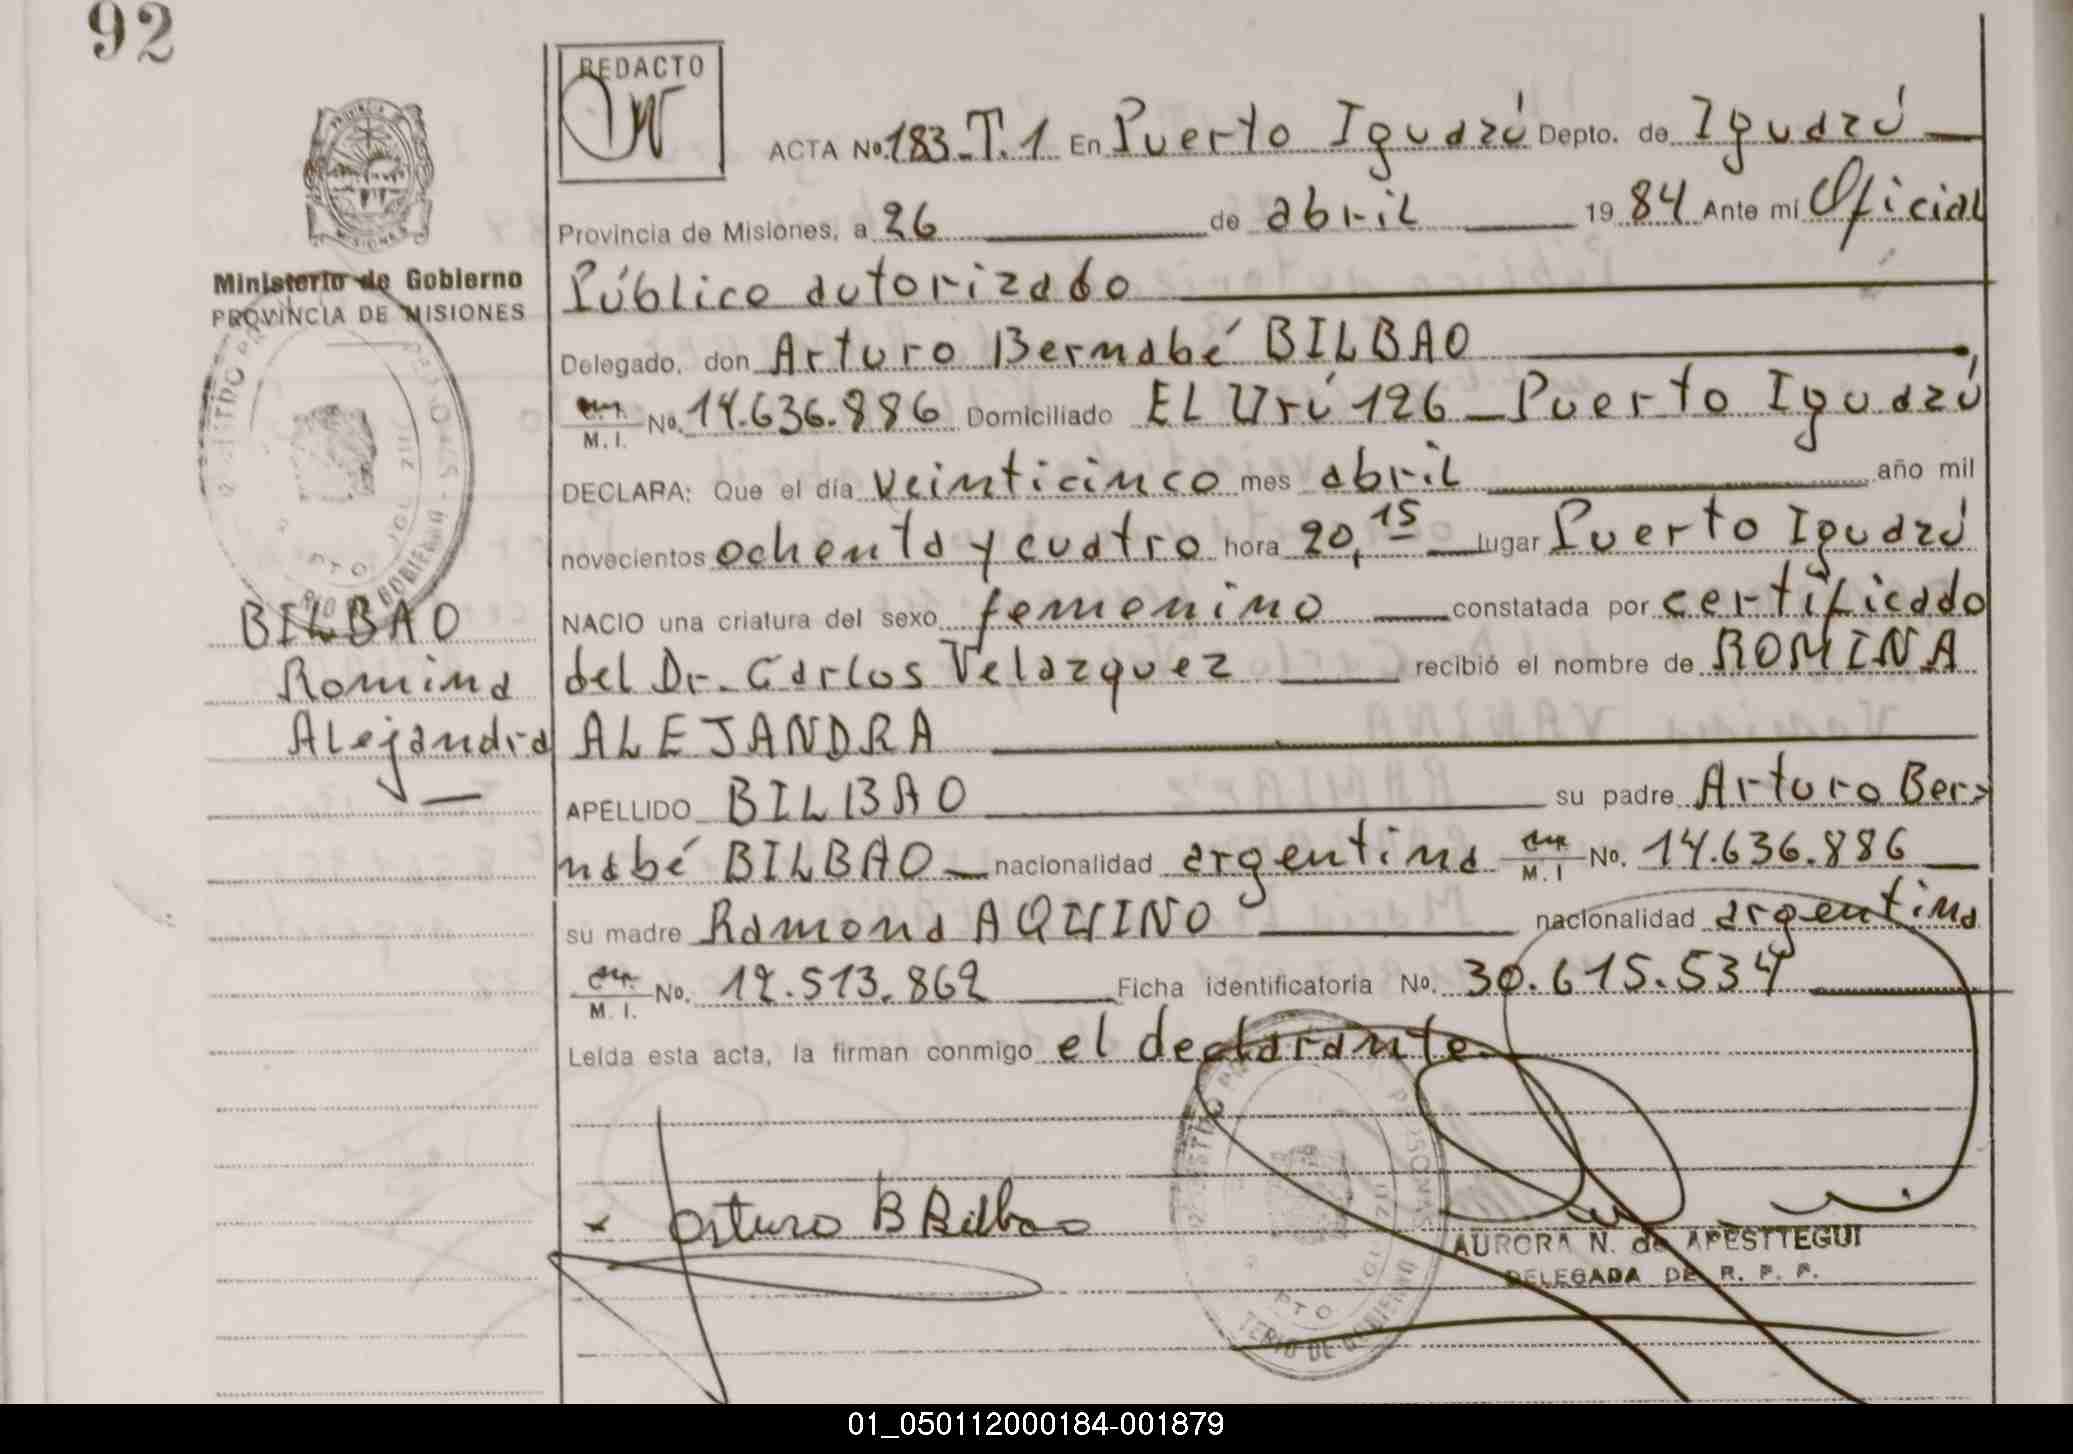 92
REDACTO
ACTA Nº 183-T.1 En Puerto Iguazú Depto. de Iguazú
PROVINCIA
MISIONES
Provincia de Misiones, a 26 de abril 1984 Ante mí Oficial
Ministerio de Gobierno
PROVINCIA DE MISIONES
Público autorizado
Delegado, don Arturo Bernabé BILBAO
M. I. Nº. 14.636.886 Domiciliado EL Urú 126 - Puerto Iguazú
DECLARA: Que el día veinticinco mes abril año mil
novecientos ochenta y cuatro hora 20,15 lugar Puerto Iguazú
NACIO una criatura del sexo femenino constatada por certificado
del Dr. Carlos Velazquez recibió el nombre de ROMINA
ALEJANDRA
BILBAO
Romina
Alejandra
APELLIDO BILBAO su padre Arturo Ber-
nabé BILBAO nacionalidad argentina M. I Nº. 14.636.886
su madre Ramona AQUINO nacionalidad argentina
M. I. Nº. 12.513.862 Ficha identificatoria Nº. 30.615.534
Leída esta acta, la firman conmigo el declarante.
Arturo B Bilbao
AURORA N. de APESTTEGUI
DELEGADA DE R. P. P.
PTO
TERIO DE GOBIERNO
01_050112000184-001879